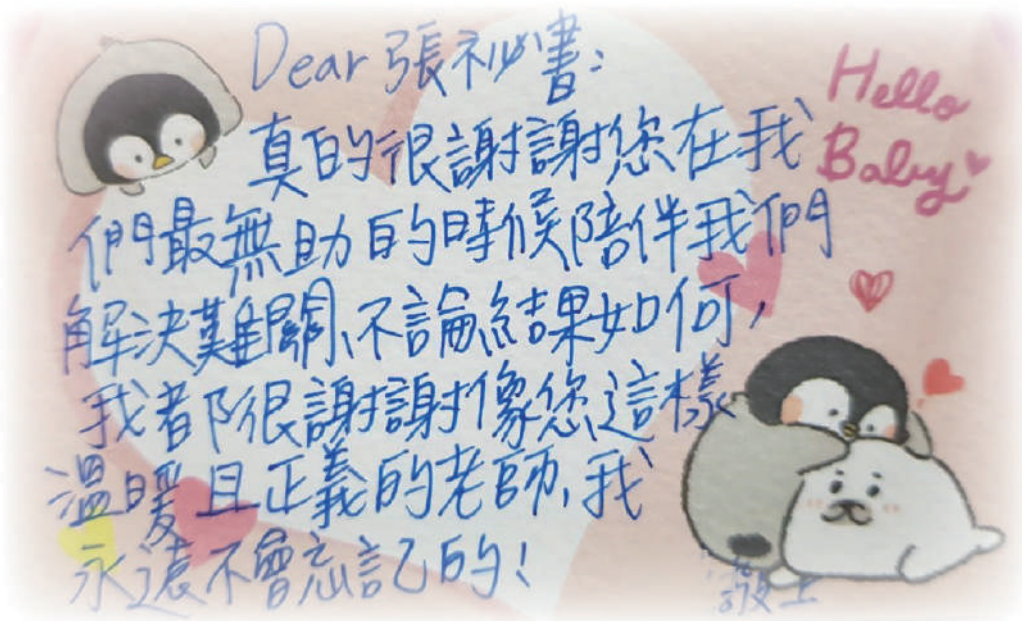 Dear 張祕書:
真的很謝謝您在我
們最無助的時候陪伴我們
解決難關、不論結果如何,
我都很謝謝像您這樣
溫暖且正義的老師、我
永遠不會忘記的!
Hello
Baby
敬上